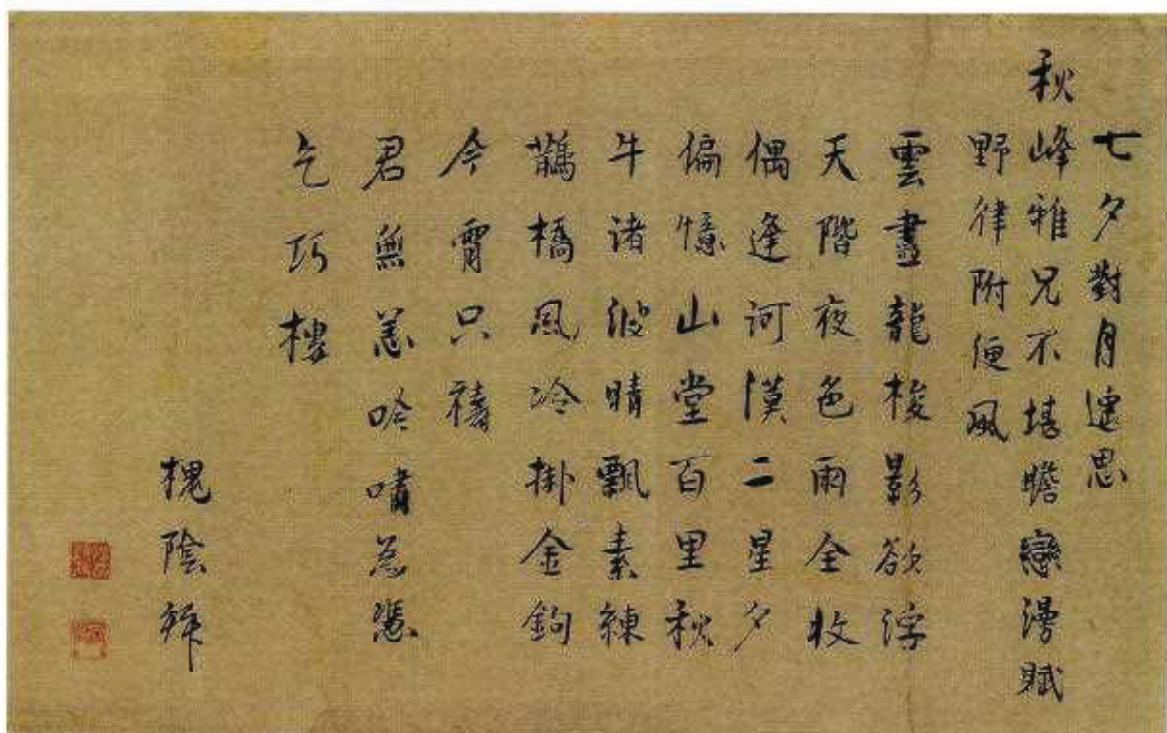 七夕對月遠思
秋峰雅兄不堪瞻戀漫賦
野律附便風
雲盡龍梭影欲浮
天階夜色雨全收
偶逢河漢二星夕
偏憶山堂百里秋
牛渚波晴飄素練
鵲橋風冷掛金鉤
今宵只禱
君無恙吟嘯忩憑
乞巧樓
槐陰拜